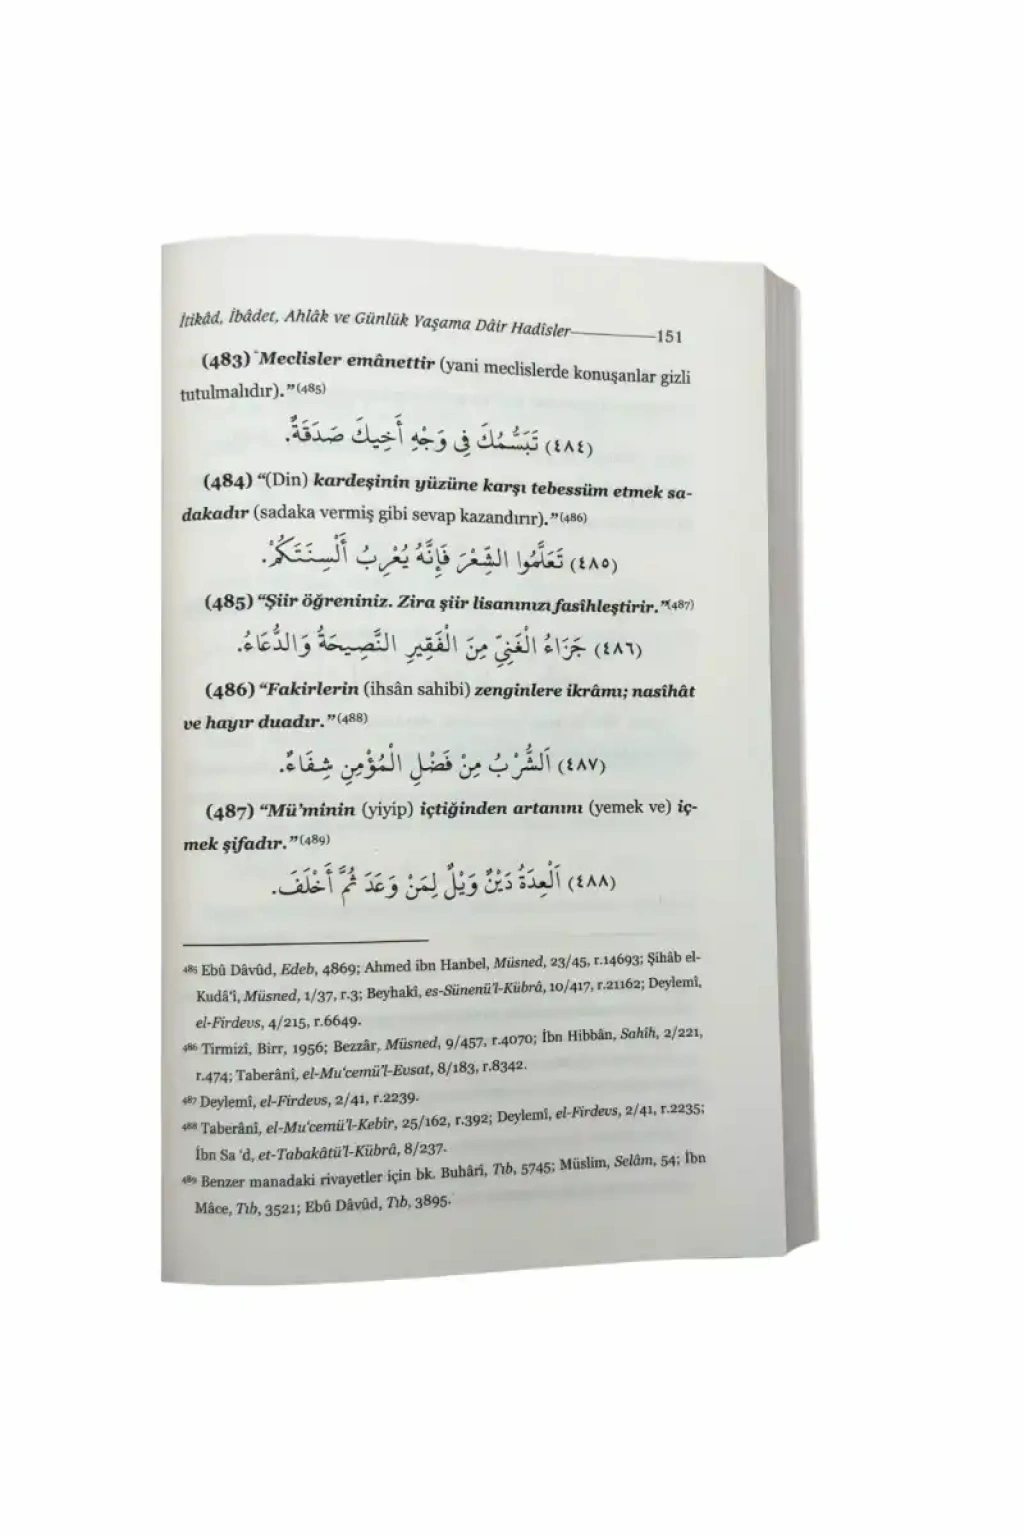 İtikâd, İbâdet, Ahlâk ve Günlük Yaşama Dâir Hadisler 151
(483) "Meclisler emânettir (yani meclislerde konuşanlar gizli
tutulmalıdır)."(485)
(٤٨٤) تَبَسُّمُكَ فِى وَجْهِ أَخِيكَ صَدَقَةٌ.
(484) "(Din) kardeşinin yüzüne karşı tebessüm etmek sa-
dakadır (sadaka vermiş gibi sevap kazandırır)."(486)
(٤٨٥) تَعَلَّمُوا الشِّعْرَ فَإِنَّهُ يُعْرِبُ أَلْسِنَتَكُمْ.
(485) "Şiir öğreniniz. Zira şiir lisanınızı fasîhleştirir."(487)
(٤٨٦) جَزَاءُ الْغَنِيِّ مِنَ الْفَقِيرِ النَّصِيحَةُ وَالدُّعَاءُ.
(486) "Fakirlerin (ihsân sahibi) zenginlere ikrâmı; nasîhât
ve hayır duadır."(488)
(٤٨٧) اَلشُّرْبُ مِنْ فَضْلِ الْمُؤْمِنِ شِفَاءٌ.
(487) "Mü'minin (yiyip) içtiğinden artanını (yemek ve) iç-
mek şifadır."(489)
(٤٨٨) اَلْعِدَةُ دَيْنٌ وَيْلٌ لِمَنْ وَعَدَ ثُمَّ أَخْلَفَ.
485 Ebû Dâvûd, Edeb, 4869; Ahmed ibn Hanbel, Müsned, 23/45, r.14693; Şihâb el-
Kudâ'î, Müsned, 1/37, r.3; Beyhakî, es-Sünenü'l-Kübrâ, 10/417, r.21162; Deylemî,
el-Firdevs, 4/215, r.6649.
486 Tirmizî, Birr, 1956; Bezzâr, Müsned, 9/457, r.4070; İbn Hibbân, Sahîh, 2/221,
r.474; Taberânî, el-Mu'cemü'l-Evsat, 8/183, r.8342.
487 Deylemî, el-Firdevs, 2/41, r.2239.
488 Taberânî, el-Mu'cemü'l-Kebîr, 25/162, r.392; Deylemî, el-Firdevs, 2/41, r.2235;
İbn Sa 'd, et-Tabakâtü'l-Kübrâ, 8/237.
489 Benzer manadaki rivayetler için bk. Buhârî, Tıb, 5745; Müslim, Selâm, 54; İbn
Mâce, Tıb, 3521; Ebû Dâvûd, Tıb, 3895.